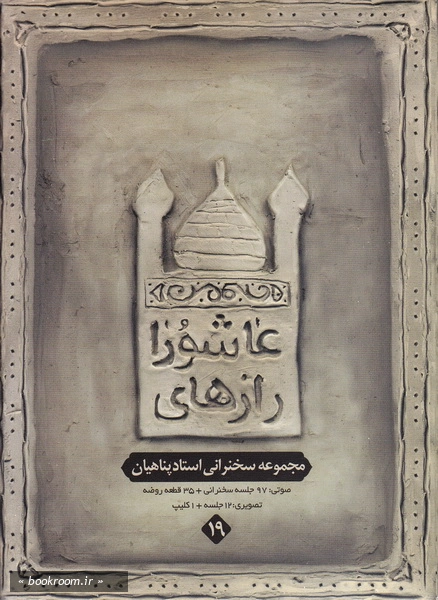 عاشورا
رازهای
مجموعه سخنرانی استاد پناهیان
صوتی: ۹۷ جلسه سخنرانی + ۳۵ قطعه روضه
تصویری: ۱۲ جلسه + ۱ کلیپ
۱۹
« bookroom.ir »